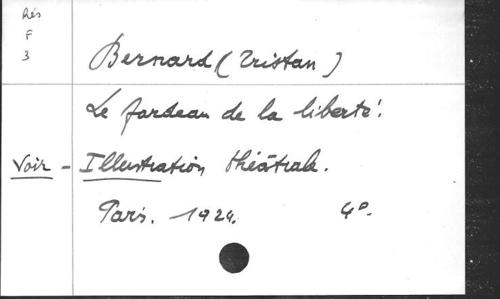 Rés
F
3
Bernard (Tristan)
Le fardeau de la liberté.
Voir - Illustration théâtrale.
Paris. 1924. 4°.